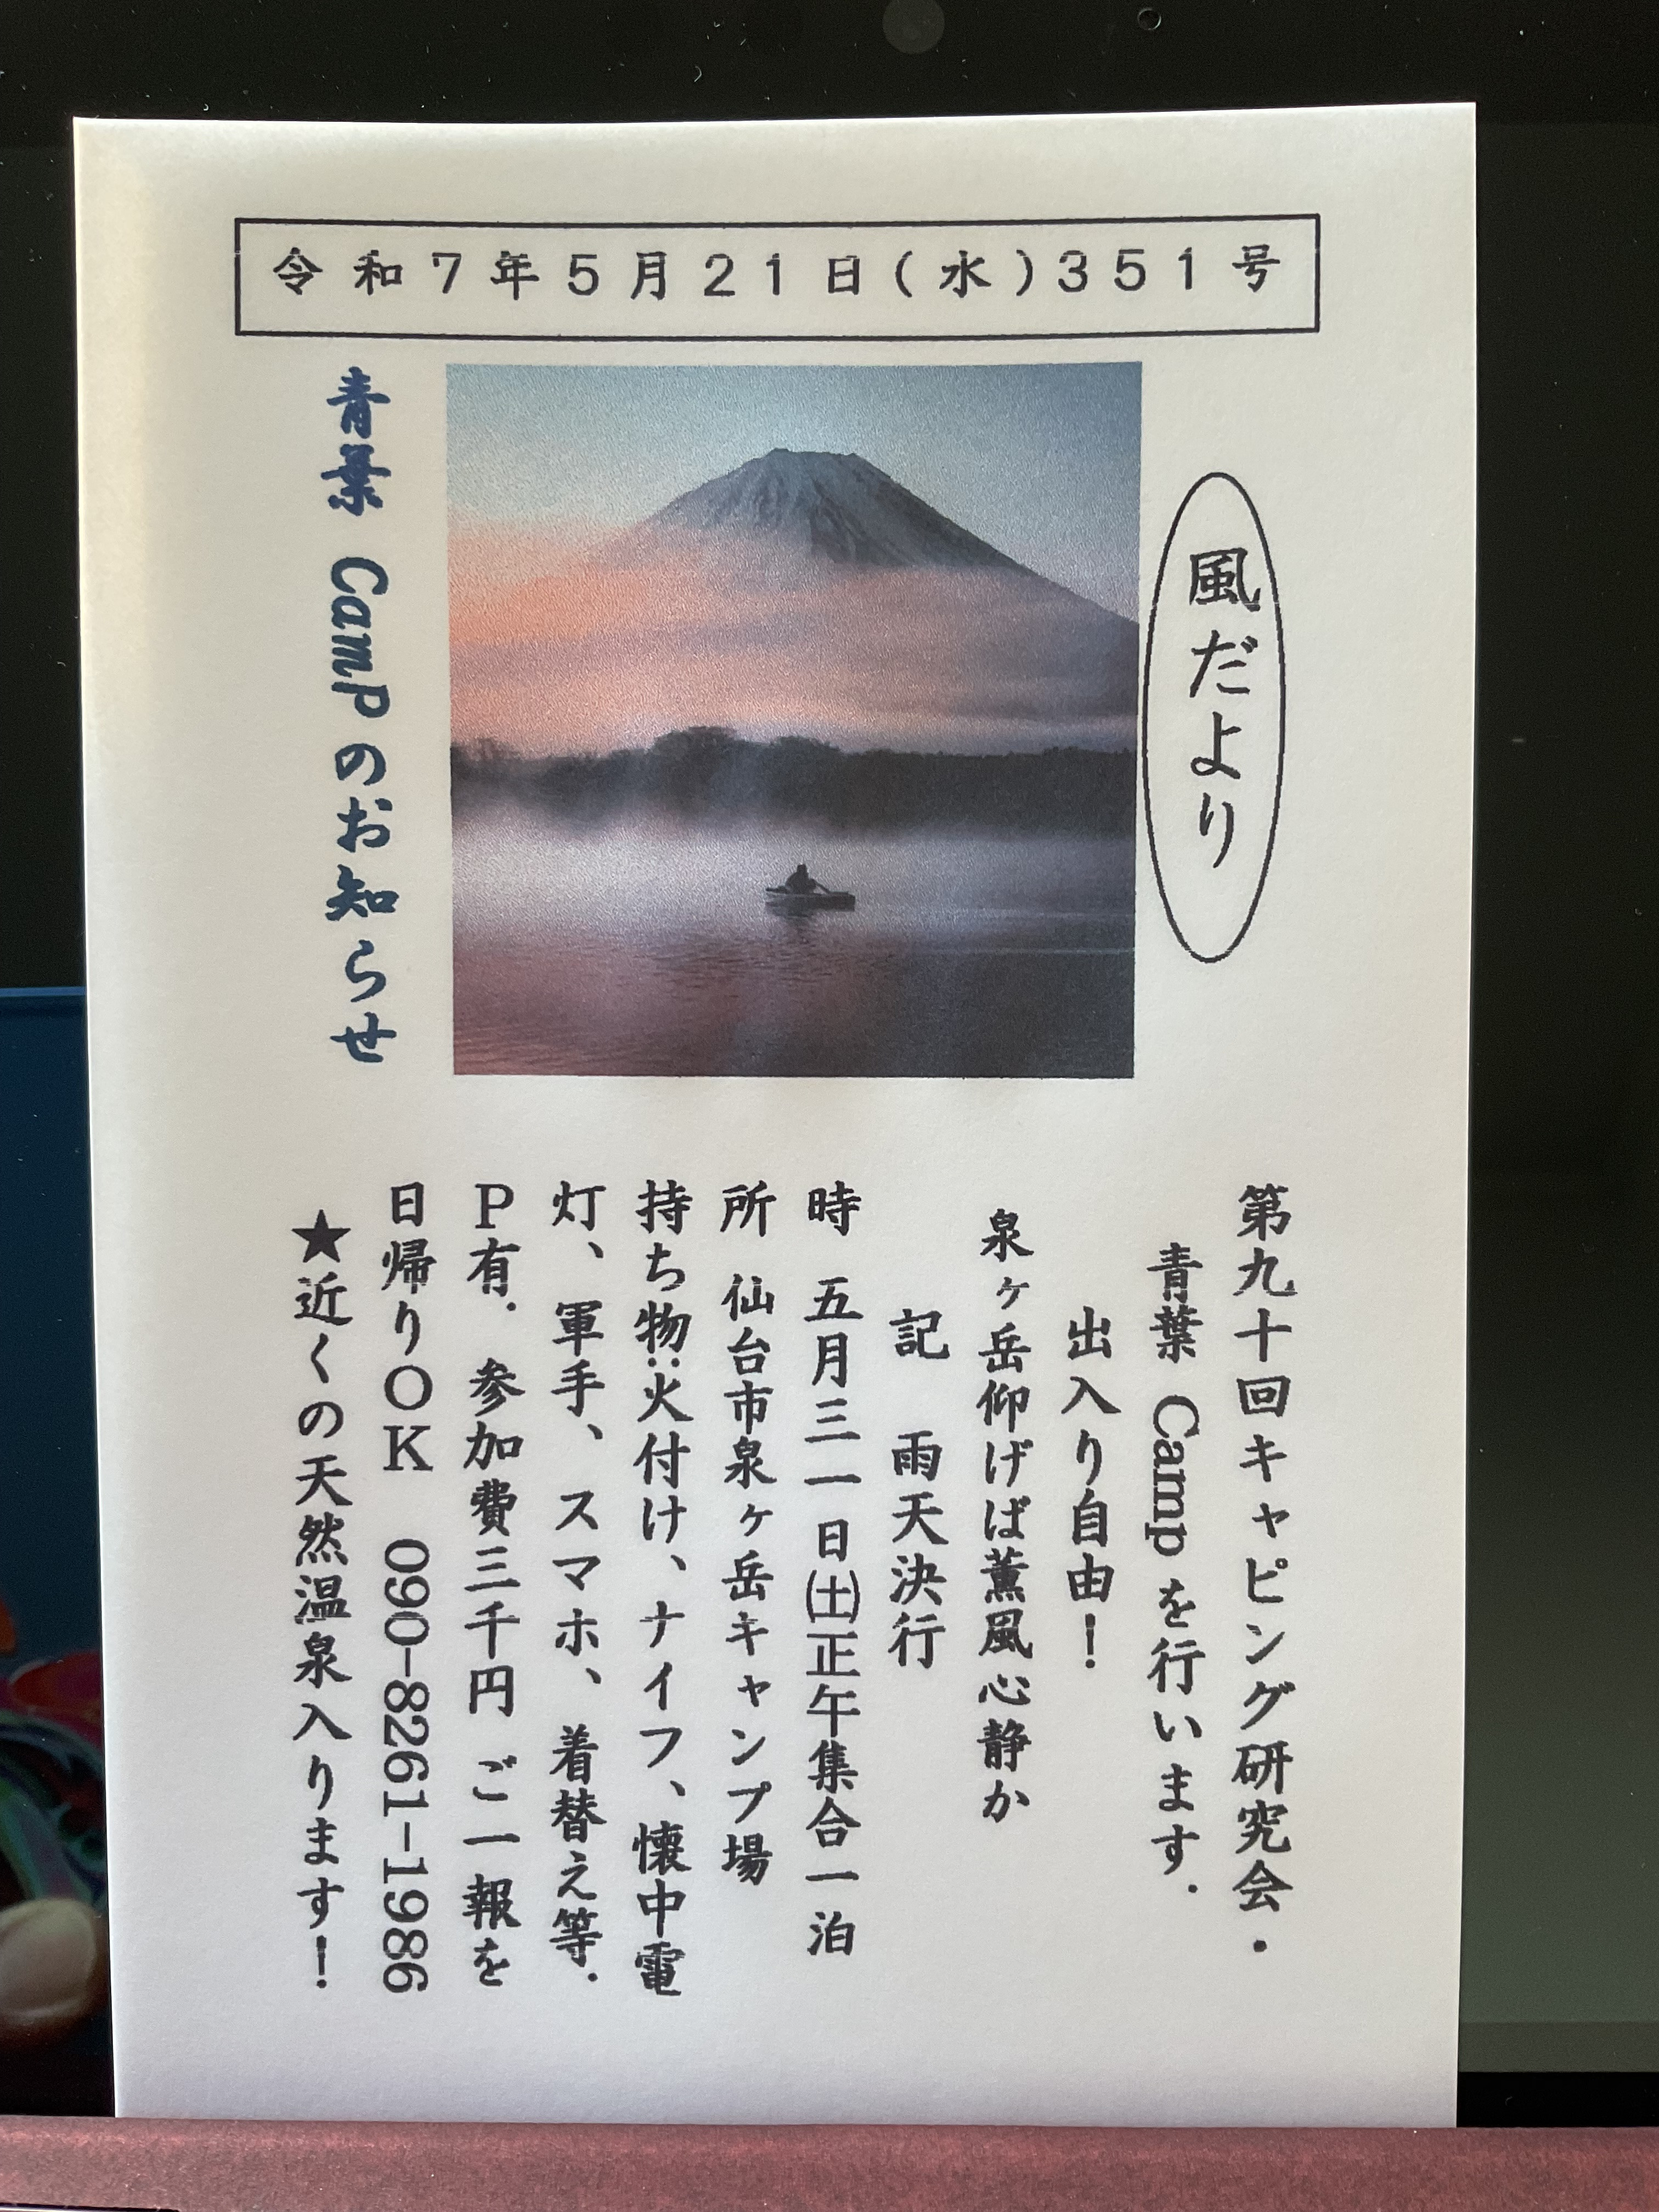 令和7年5月21日(水)351号
風だより
青葉 Camp のお知らせ
第九十回キャピング研究会・
青葉 Camp を行います.
出入り自由!
泉ヶ岳仰げば薫風心静か
記 雨天決行
時 五月三一日㈯正午集合一泊
所 仙台市泉ヶ岳キャンプ場
持ち物:火付け、ナイフ、懐中電
灯、軍手、スマホ、着替え等.
P有. 参加費三千円 ご一報を
日帰りOK 090-8261-1986
★近くの天然温泉入ります!